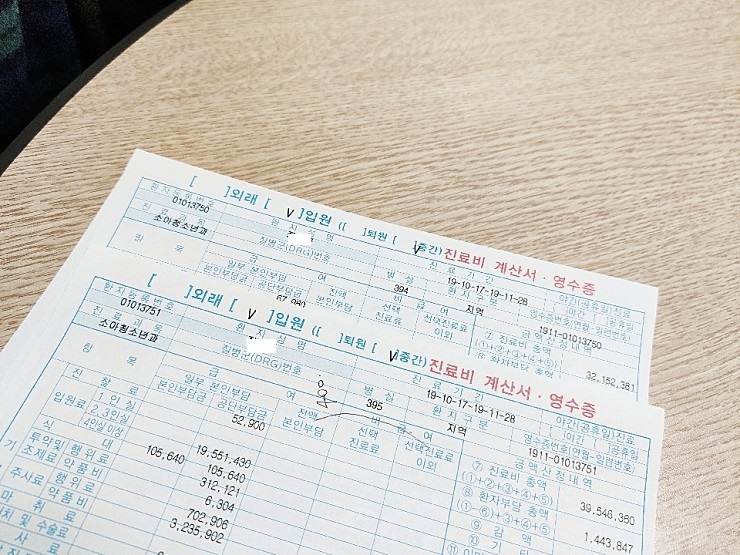 [ ]외래 [ V ]입원 ([ ]퇴원 [ V ]중간) 진료비 계산서 · 영수증
환자등록번호 환자성명 진료기간 야간(공휴일)진료
01013750 19-10-17-19-11-28 야간 공휴일
진료과목 질병군(DRG)번호 병실 환자구분 영수증번호(연월-일련번호)
소아청소년과 394 지역 1911-01013750
항목 급여 비급여 금액산정내역
일부 본인부담 전액 본인부담 선택 진료료 선택진료료 이외 ⑦ 진료비 총액 (①+②+③+④+⑤) 32,152,381
본인부담금 공단부담금 ⑧ 환자부담 총액
[ ]외래 [ V ]입원 ([ ]퇴원 [ V ]중간) 진료비 계산서 · 영수증
환자등록번호 환자성명 진료기간 야간(공휴일)진료
01013751 19-10-17-19-11-28 야간 공휴일
진료과목 질병군(DRG)번호 병실 환자구분 영수증번호(연월-일련번호)
소아청소년과 395 지역 1911-01013751
항목 급여 비급여 금액산정내역
일부 본인부담 전액 본인부담 선택 진료료 선택진료료 이외 ⑦ 진료비 총액 (①+②+③+④+⑤) 39,546,350
본인부담금 공단부담금 ⑧ 환자부담 총액 (①-⑥)+③+④+⑤ 1,443,847
진찰료 52,900
입원료 1인실
2,3인실
4인실 이상 19,551,430
식대 105,640 105,640
투약및 조제료 행위료 312,121
약품비 6,304
주사료 행위료 702,906
약품비 3,235,902
마취료
처치 및 수술료
⑨ 감액
⑩ 기타